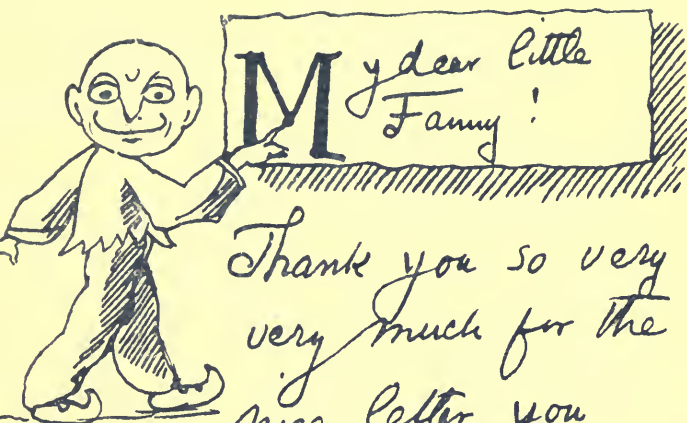 My dear little
Fanny!
Thank you so very
very much for the
nice letter you